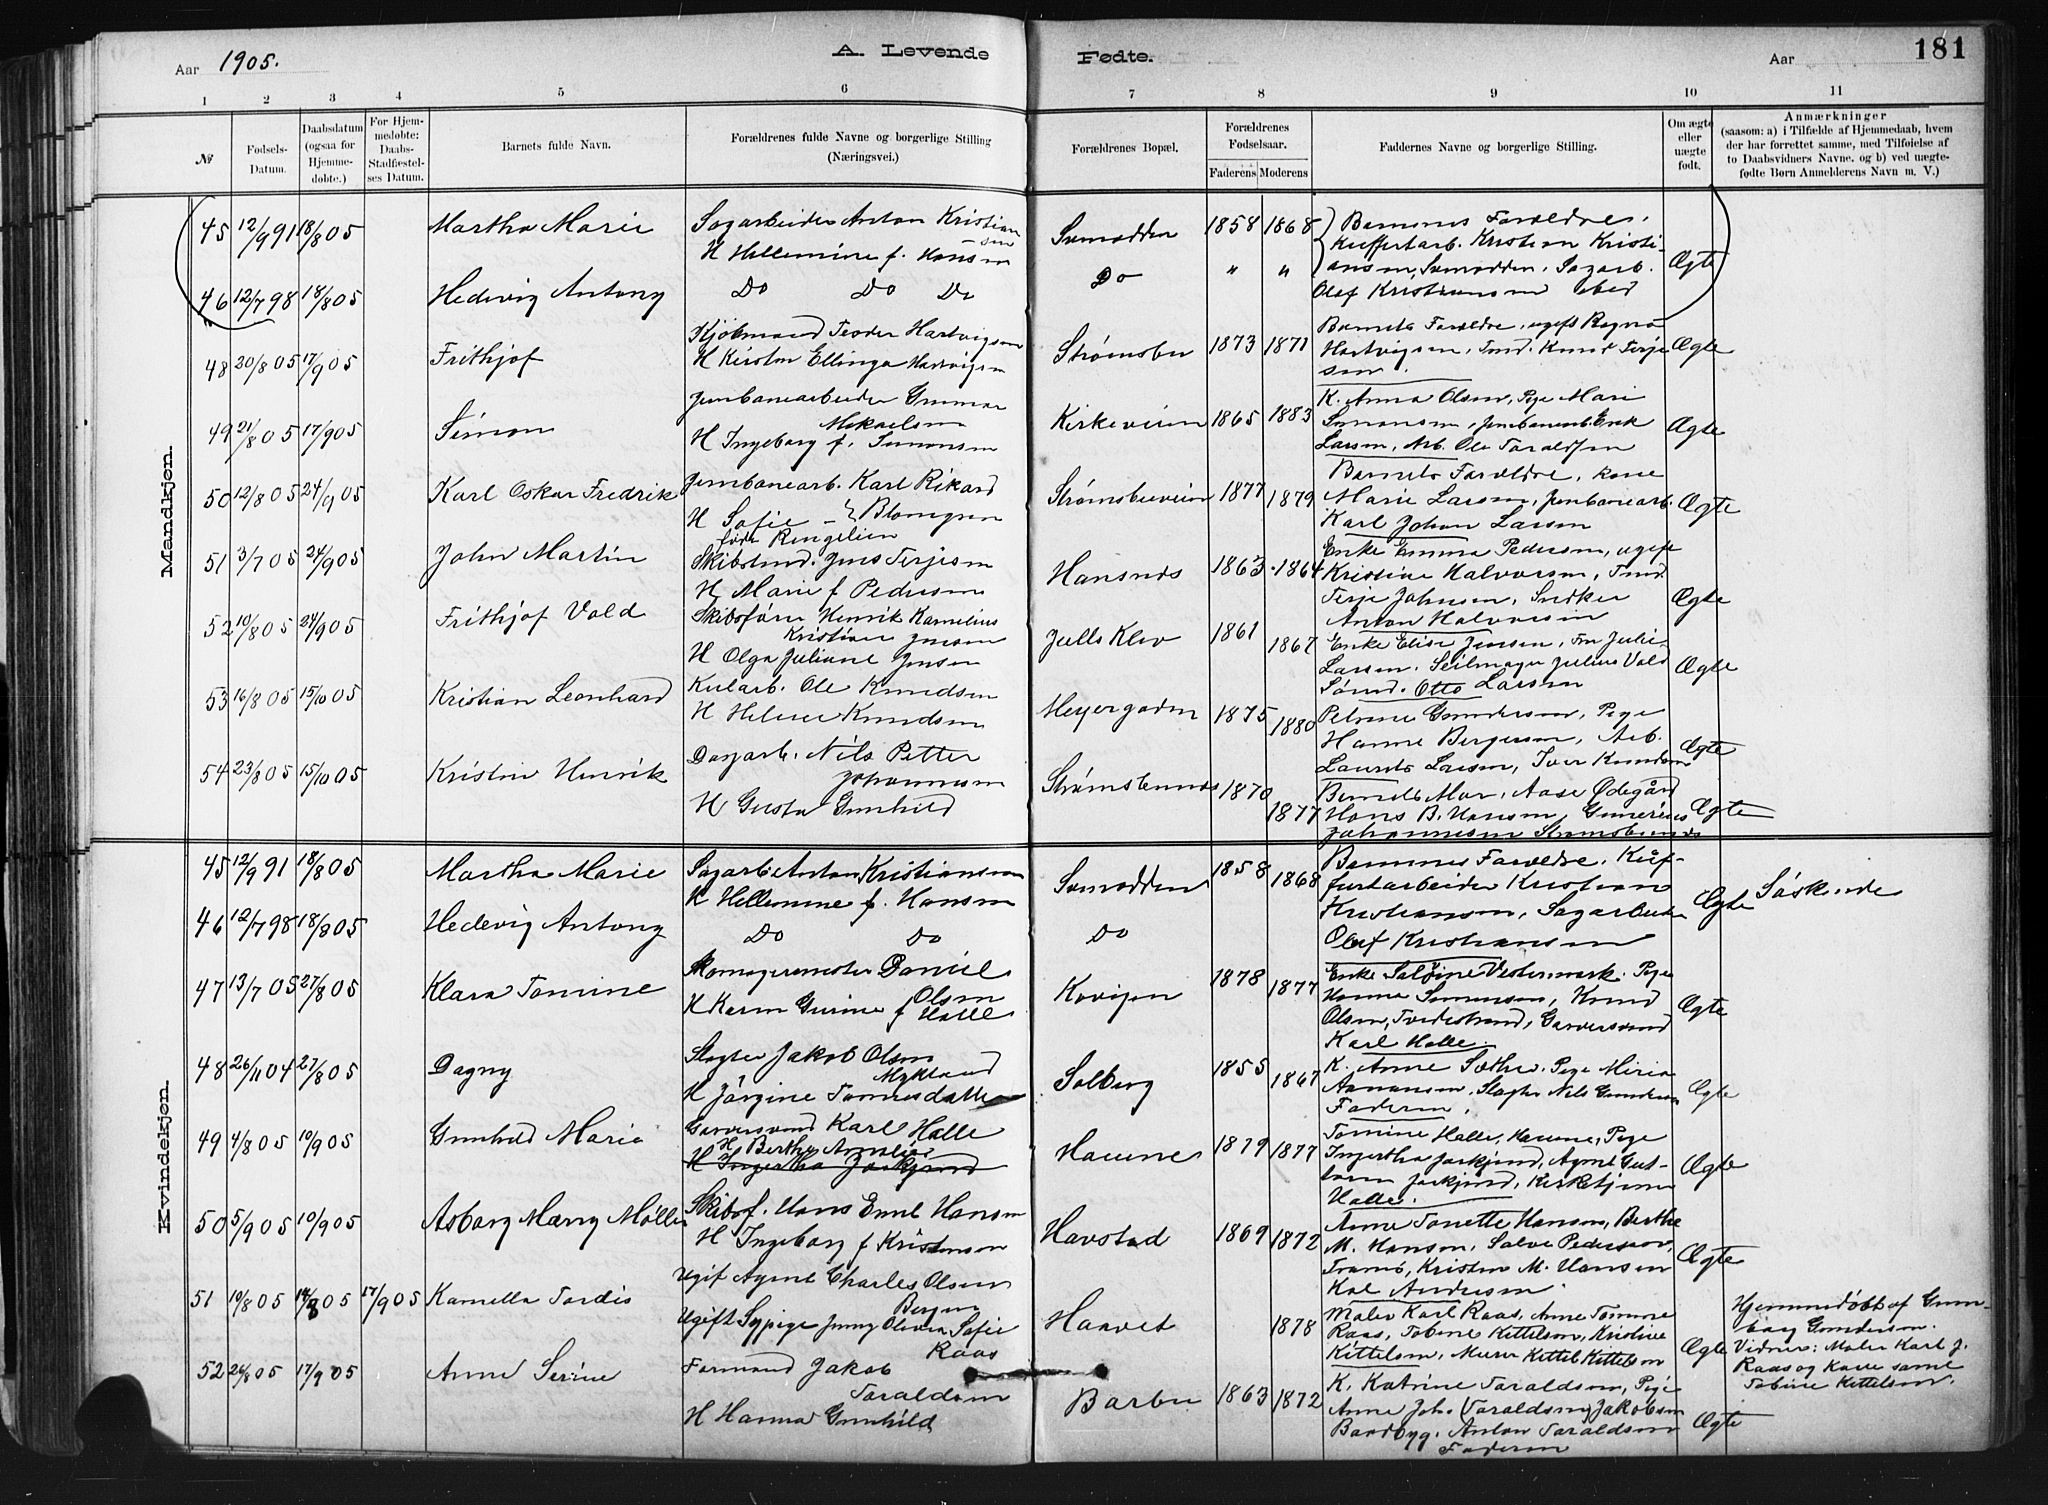 Aar 1905.
A. Levende
Fødte.
Aar
181
1 2 3 4 5 6 7 8 9 10 11
№
Fødsels-
Datum.
Daabsdatum
(ogsaa for
Hjemme-
døbte.)
For Hjem-
medøbte:
Daabs-
Stadfæstel-
ses Datum.
Barnets fulde Navn.
Forældrenes fulde Navne og borgerlige Stilling
(Næringsvei.)
Forældrenes Bopæl.
Forældrenes
Fødselsaar.
Faderens Moderens
Faddernes Navne og borgerlige Stilling.
Om ægte
eller
uægte
født.
Anmærkninger
(saasom: a) i Tilfælde af Hjemmedaab, hvem
der har forrettet samme, med Tilføielse af
to Daabsvidners Navne. og b) ved uægte-
fødte Børn Anmelderens Navn m. V.)
Mandkjøn.
45 12/9 91 18/8 05 Martha Marie
Sagarbeider Anton Kristian
sen
H Hellemine f. Hansen
1858 1868
Barnenes Forældre.
Kuffertarb. Kristian Kristi-
ansen, Sagarb.
Olaf Kristiansen ibid
Ægte
46 12/7 98 18/8 05 Hedevig Antony
Do Do Do
Do " "
48 20/8 05 17/9 05 Frithjof
Kjøbmand Teodor Hartvigsen
H Kirsten Ellinga Hartvigsen
Strømsbu 1873 1871
Barnets Forældre, ugift Ragna
Hartvigsen, Knut Terje
sen.
Ægte
49 21/8 05 17/9 05 Simon
Jernbanearbeider Gunnar
Mikaelsen
H Ingeborg f. Simonsen
Kirkeveien 1865 1883
K. Anna Olsen, Pige Mari
Simonsen, Jernbanearb Erik
Larsen, Arb. Ole Taraldsen
Ægte
50 12/8 05 24/9 05 Karl Oskar Fredrik
Jernbanearb. Karl Rikard
Blomgren
H Sofie
født Ringelien
Strømsbuveien 1877 1879
Barnets Forældre, kone
Marie Larsen, Jernbanearb.
Karl Johan Larsen
Ægte
51 3/7 05 24/9 05 John Martin
Skibstmd. Jens Terjesen
H Marie f Pedersen
Hansnes 1863 1864
Enke Emma Pedersen, ugift
Kristine Halvorsen, Tmd.
Terje Johnsen, Snedker
Anton Halvorsen
Ægte
52 10/8 05 24/9 05 Frithjof Vold
Skibsfører Henrik Kornelius
Kristian Jensen
H Olga Juliane Jensen
Julls Klev 1861 1867
Enke Elise Jensen, Fru Julie
Larsen, Seilmager Julius Vold
Otto Larsen
Ægte
53 16/8 05 15/10 05 Kristian Leonhard
Kularb. Ole Knudsen
H Helene Knudsen
Meyergaden 1875 1880
Petrine Gundersen, Pige
Hanne Bergesen, Arb.
Laurits Larsen, Iver Knudsen
Ægte
54 23/8 05 15/10 05 Kristen Henrik
Dagarb. Nils Petter
Johannesen
H Gusta Gunhild
Strømsbunes 1870 1877
Barnets Mor, Aase Ødegård
Hans B. Hansen, Gunerius
Johannesen Strømsbunes
Ægte
Kvindekjøn.
45 12/9 91 18/8 05 Martha Marie
Sagarb Anton Kristiansen
H Hellemine f. Hansen
1858 1868
Barnenes Forældre. Kuf-
fertarbeider Kristian
Kristiansen, Sagarbeider
Olaf Kristiansen
Ægte Søskende
46 12/7 98 18/8 05 Hedevig Antony
Do Do
Do
47 13/7 05 27/8 05 Klara Tomine
Skomagermester Daniel
Olsen
H Karen Gurine f Halle
1878 1877
Enke Vestermark. Pige
Hanna Simonsen, Knud
Olsen, Tvedestrand, Garversvend
Karl Halle.
Ægte
48 26/11 04 27/8 05 Dagny
Slagter Jakob Olsen
Mykland
H Jørgine Tomesdatter
Solberg 1855 1867
K. Anne Sæther. Pige Miria
Aanansen, Slagter Nils Gundersen
Faderen.
Ægte
49 4/8 05 10/9 05 Gunhild Marie
Garversvend Karl Halle
H. Berthe Amalie
H Ingertha Jorkjend
Havene 1879 1877
Tomine Halle, Havene, Pige
Ingertha Jorkjend, Agent Gut-
torm Jorkjend,
Halle.
Ægte
50 5/9 05 10/9 05 Asborg Marry Møller
Skibsf. Hans Emil Hansen
H Ingeborg f Kristensen
Havstad 1869 1872
Anne Tonette Hansen, Berthe
M. Hansen, Salve Pedersen,
Tromø, Kristen M. Hansen
Andersen.
Ægte
51 10/8 05 14/8 05 17/9 05 Kamella Tordis
Ugif Agent Charles Olsen
Bergen
Ugift Sypige Jenny Olivia Sofie
Raas
1878
Maler Karl Raas, Anne Tomine
Raas, Tobine Kittelsen, Kristine
Kittelsen, Murer Kittel Kittelsen
Ægte
Hjemmedøbt af Gun-
borg Gundersen.
Vidner: Maler Karl J.
Raas og Kone samt
Tobine Kittelsen.
52 26/8 05 17/9 05 Anne Serine
Formand Jakob
Taraldsen
H Hanna Gunhild
Barbu 1863 1872
K. Katrine Taraldsen, Pige
Anne Joh. (Taraldsen) Jakobsen
Baadbyg. Anton Taraldsen
Faderen
Ægte